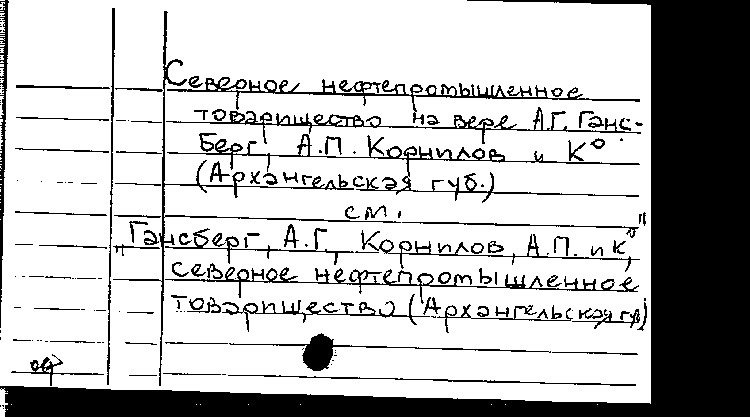 Северное нефтепромышленное
товарищество на вере А.Г. Ганс-
берг, А.П. Корнилов и К°
(Архангельская губ.)
см.
"Гансберг, А.Г., Корнилов, А.П. и К°,"
северное нефтепромышленное
товарищество (Архангельская губ)